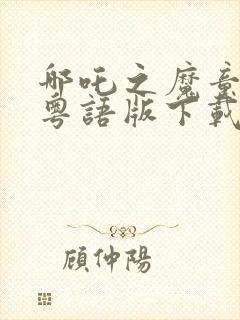 哪吒之魔童
粵語版下載
顧仲陽